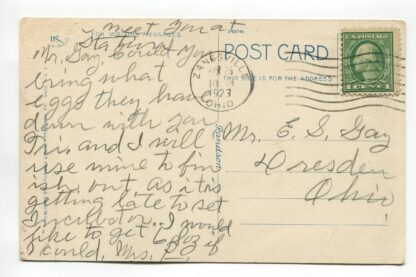 meet you at
station
FOR WRITING MESSAGES
Mr. Gay, Could you
bring what
eggs they have
down with you
Fri, and I will
use mine to fin
ish out, as it is
getting late to set
Incubator. I would
like to get
I could, Mrs. if
POST CARD
THIS SIDE IS FOR THE ADDRESS
ZANESVILLE
OHIO
10
1923
U.S. POSTAGE
1 CENT 1
Mr. E. S. Gay
Dresden
Ohio